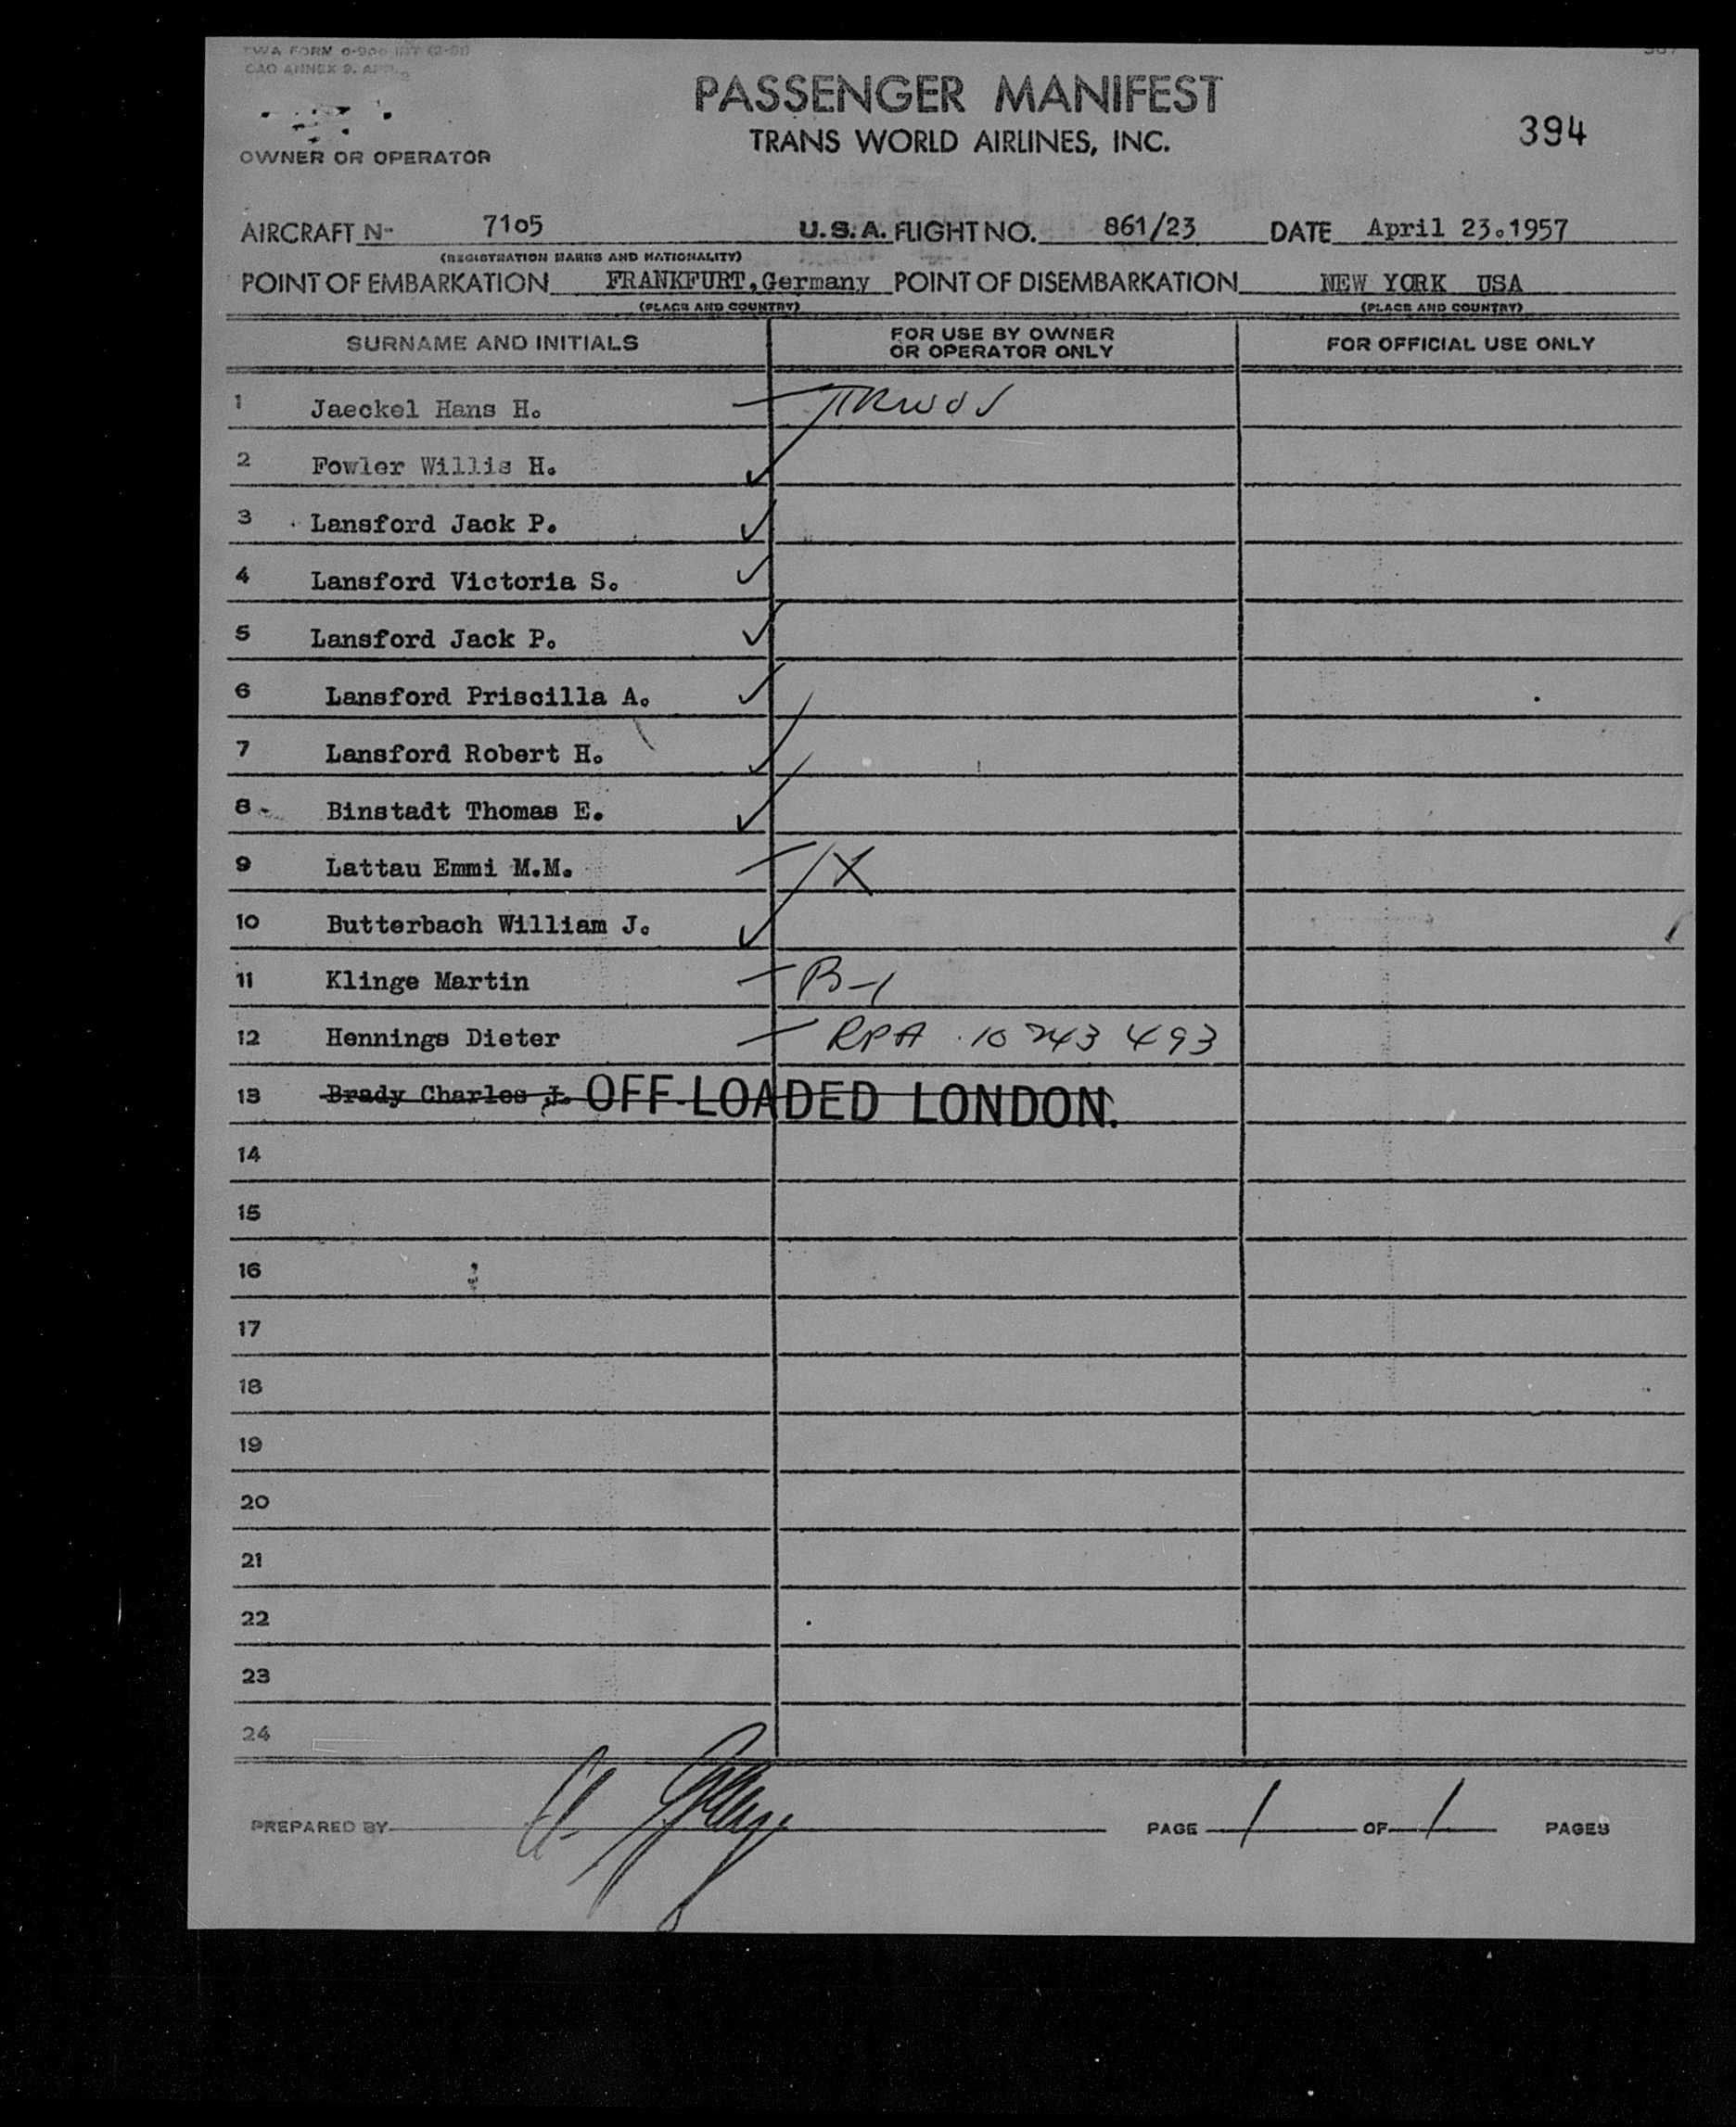 TWA FORM
PASSENGER MANIFEST
TRANS WORLD AIRLINES, INC.
394
OWNER OR OPERATOR
AIRCRAFT N- 7105 U.S.A. FLIGHT NO. 861/23 DATE April 23.1957
(REGISTRATION MARKS AND NATIONALITY)
POINT OF EMBARKATION FRANKFURT, Germany POINT OF DISEMBARKATION NEW YORK USA
(PLACE AND COUNTRY) (PLACE AND COUNTRY)
SURNAME AND INITIALS FOR USE BY OWNER OR OPERATOR ONLY FOR OFFICIAL USE ONLY
1 Jaeckel Hans H.
2 Fowler Willis H.
3 Lansford Jack P.
4 Lansford Victoria S.
5 Lansford Jack P.
6 Lansford Priscilla A.
7 Lansford Robert H.
8 Binstadt Thomas E.
9 Lattau Emmi M.M. X
10 Butterbach William J.
11 Klinge Martin B-1
12 Hennings Dieter RPA 10 243 493
13 Brady Charles J. OFF-LOADED LONDON.
14
15
16
17
18
19
20
21
22
23
24
PREPARED BY PAGE 1 OF 1 PAGES